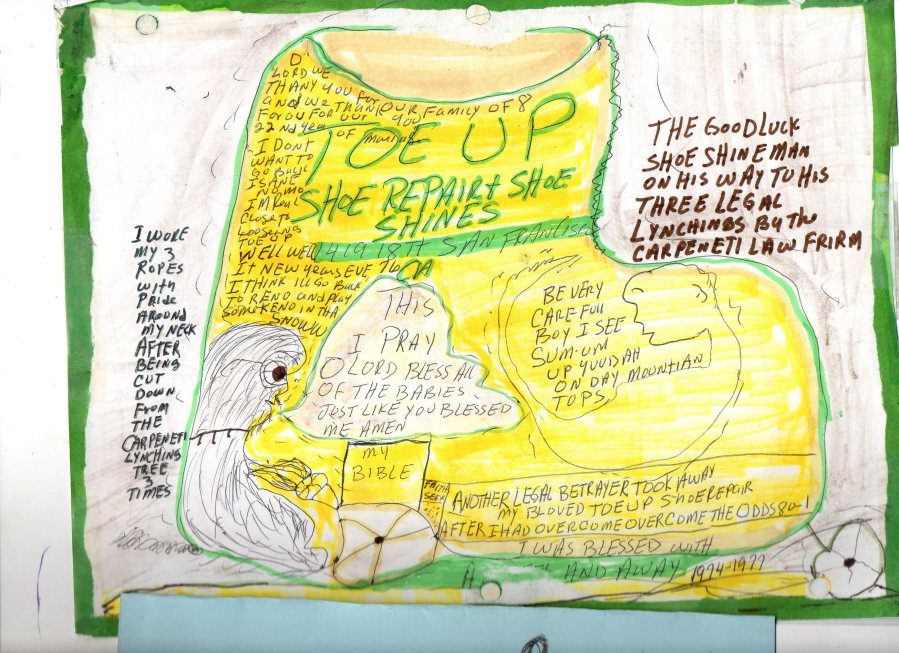 O'
LORD WE
THANY YOU for
and WE THANK OUR FAMILY OF 8
FOR OU FOR OUR YOU
22nd year OF
I DONT
WANT TO
GO BACK
ISANE
NO MO
IM REAL
Close to
LOOSEING
TOE UP
WELL WELL
IT NEW YEARS EVE 76
I THINK ILL GO BACK
TO RENO and PLAY
SOM KENO IN THA
SNOWW
TOE UP
SHOE REPAIR + SHOE
SHINES
419 18TH SAN FRANCISCO
CA
THE GOODLUCK
SHOE SHINE MAN
ON HIS WAY TO HIS
THREE LEGAL
LYNCHINGS BY the
CARPENETI LAW FRIRM
I WORE
MY 3
ROPES
with
PRIDE
AROUND
MY NECK
AFTER
BEING
CUT
DOWN
FROM
THE
CARPENETI
LYNCHING
TREE
3
TIMES
THIS
I PRAY
O LORD BLESS ALL
OF THE BABIES
JUST LIKE YOU BLESSED
ME AMEN
MY
BIBLE
BE VERY
CAREFUll
BOY I SEE
SUM-UM
UP YUUDAH
ON DAY MOUNTIAN
TOPS
FAITH
SEED
ANOTHER LEGAL BETRAYER TOOK AWAY
MY BLOVED TOE UP SHOE REPAIR
AFTER I HAD OVERCOME OVERCOME THE ODDS 80-1
I WAS BLESSED WITH
AND AWAY 1974-1977